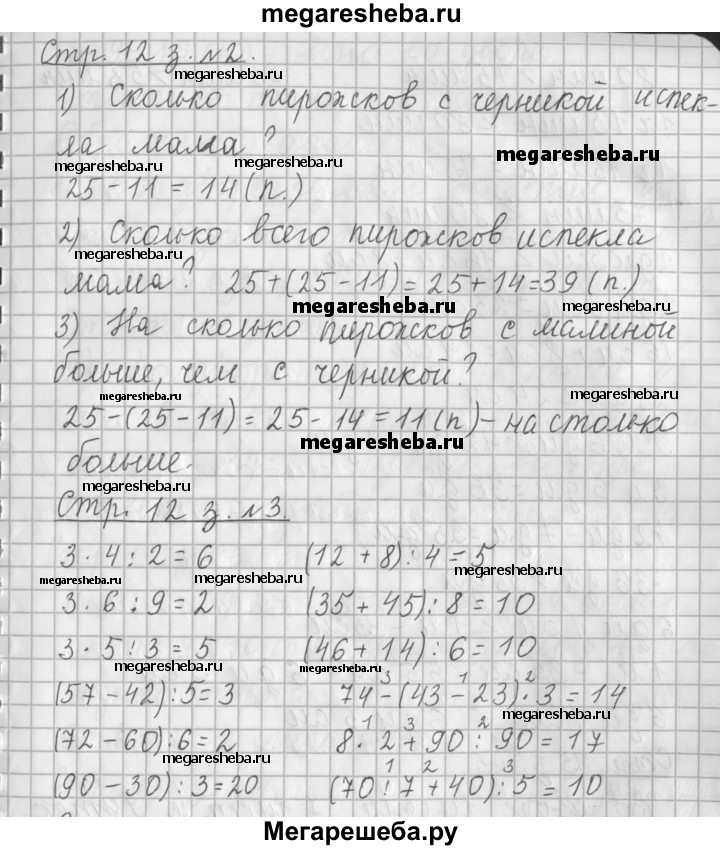 megaresheba.ru
Стр. 12 з. №2.
megaresheba.ru
1) Сколько пирожков с черникой испек-
ла мама?
megaresheba.ru megaresheba.ru megaresheba.ru
25 - 11 = 14 (п.)
megaresheba.ru
2) Сколько всего пирожков испекла
megaresheba.ru
мама? 25+(25-11)=25+14=39 (п.)
megaresheba.ru megaresheba.ru
3) На сколько пирожков с малиной
больше, чем с черникой?
megaresheba.ru megaresheba.ru
25-(25-11)=25-14=11(п)-на столько
megaresheba.ru
больше.
megaresheba.ru
Стр. 12 з. №3.
3 · 4 : 2 = 6 (12 + 8) : 4 = 5
megaresheba.ru megaresheba.ru megaresheba.ru
3 · 6 : 9 = 2 (35 + 45) : 8 = 10
3 · 5 : 3 = 5 (46 + 14) : 6 = 10
megaresheba.ru megaresheba.ru
3 1 2
(57 - 42) : 5 = 3 74 - (43 - 23) · 3 = 14
megaresheba.ru
1 3 2
(72 - 60) : 6 = 2 8 · 2 + 90 : 90 = 17
megaresheba.ru
1 2 3
(90 - 30) : 3 = 20 (70 : 7 + 40) : 5 = 10
megaresheba.ru megaresheba.ru
Мегарешеба.ру